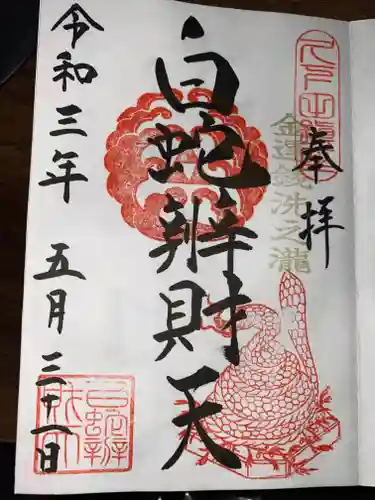 奉拝
金運銭洗之瀧
白蛇辨財天
令和三年 五月三十一日
白蛇辨
財天